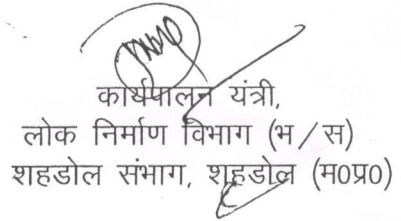 कार्यपालन यंत्री,
लोक निर्माण विभाग (भ/स)
शहडोल संभाग, शहडोल (म0प्र0)